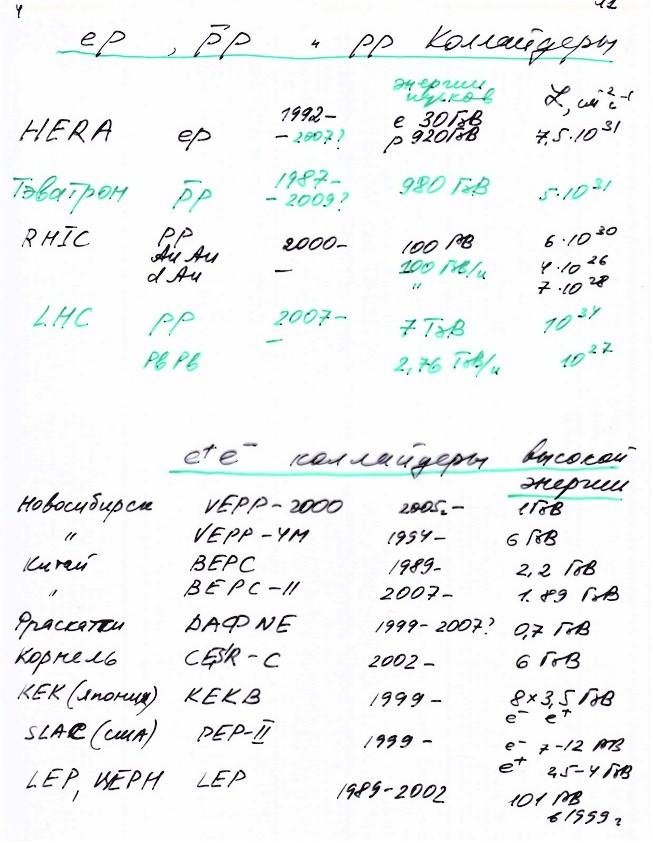 4
ер, p̅p и pp Коллайдеры
энергии пучков L, см⁻²с⁻¹
HERA ep 1992- -2007? e 30 ГэВ p 920 ГэВ 7,5·10³¹
Тэватрон p̅p 1987- -2009? 980 ГэВ 5·10³¹
RHIC pp 2000- 100 ГэВ 6·10³⁰
Au Au - 100 ГэВ/н 4·10²⁶
d Au " 7·10²⁸
LHC pp 2007- 7 ТэВ 10³⁴
Pb Pb - 2,76 ТэВ/н 10²⁷
e⁺e⁻ коллайдеры высокой
энергии
Новосибирск VEPP-2000 2005г.- 1 ГэВ
" VEPP-4M 1994- 6 ГэВ
Китай BEPC 1989- 2,2 ГэВ
" BEPC-II 2007- 1.89 ГэВ
Фраскатти DAФNE 1999-2007? 0,7 ГэВ
Корнель CESR-C 2002- 6 ГэВ
КЕК (Япония) KEKB 1999- 8×3,5 ГэВ
e⁻ e⁺
SLAC (США) PEP-II 1999- e⁻ 7-12 ГэВ
e⁺ 2,5-4 ГэВ
LEP, ЦЕРН LEP 1989-2002 101 ГэВ
в 1999г